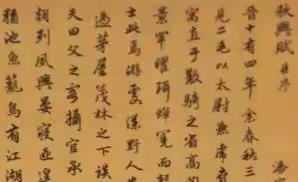 秋興賦并序 潘
晉十有四年余春秋三
見二毛以太尉兼虎賁
寓直于散騎之省高
景罕曜珥蟬冕而
士此焉游處僕野人
過茅屋茂林之下談
夫田父之客攝官承
朝列夙興晏寢匪遑
猶池魚籠鳥有江湖